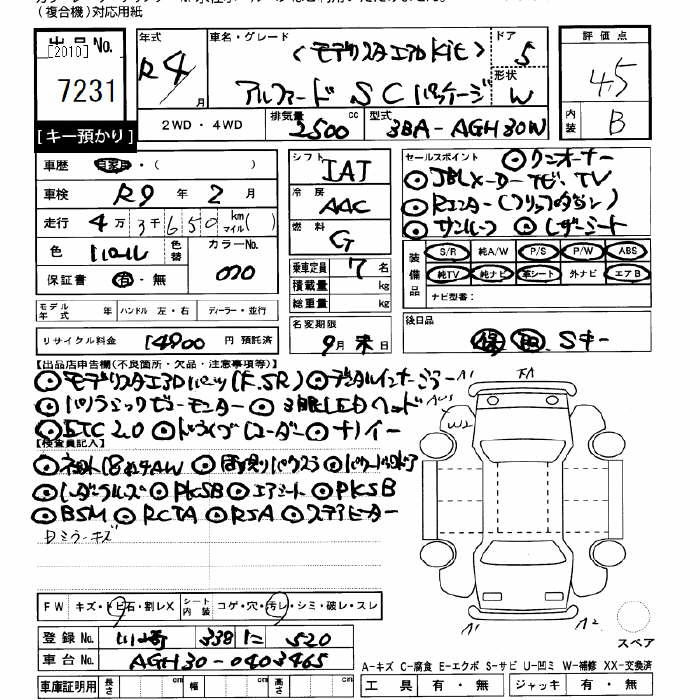 (複合機)対応用紙
出品No.
[2010]
7231
[キー預かり]
年式 R4 月
車名・グレード (モデリスタエアロKit)
アルファード SCパッケージ
ドア 5
形状 W
評価点 4.5
内装 B
2WD・4WD
排気量 2500 cc
型式 3BA-AGH30W
車歴 自家・( )
車検 R9年 2月
走行 4万3千650 km マイル( )
色 パール 色替 カラーNo. 070
保証書 有・無
モデル年式 年 ハンドル 左・右 ディーラー・並行
リサイクル料金 14900 円 預託済
シフト IAT
冷房 AAC
燃料 G
乗車定員 7 名
積載量 kg
総重量 kg
名変期限 9月末日
セールスポイント ◎ワンオーナー
◎JBLメーカーナビ、TV
◎Rエンター(フリップダウン)
◎サンルーフ ◎レザーシート
装備品 S/R 純A/W P/S P/W ABS
純TV 純ナビ 革シート 外ナビ エアB
ナビ型番:
後日品 保 取 Sキー
【出品店申告欄(不良箇所・欠品・注意事項等)】
◎モデリスタエアロパーツ(F.S.R) ◎デジタルインナーミラー
◎パノラミックビューモニター ◎3眼LEDヘッド
◎ETC2.0 ◎ドライブレコーダー ◎ナノイー
【検査員記入】
◎ネ申ト18インチAW ◎両側パワスラ ◎パワーバックドア
◎レーダークルーズ ◎PKSB ◎エアシート ◎PKSB
◎BSM ◎RCTA ◎RSA ◎ステアヒーター
ロミラーキズ
FW キズ・トビ石・割レX シート内装 コゲ・穴・汚レ・シミ・破レ・スレ
登録No. 川崎 338 に 520
車台No. AGH30-0403465
車庫証明用 長さ cm 幅 cm 高さ cm
A1
W2
A1
A2
スペア
A-キズ C-腐食 E-エクボ S-サビ U-凹ミ W-補修 XX-交換済
工具 有・無 ジャッキ 有・無